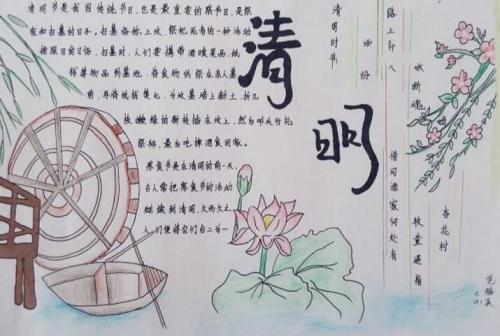 清明节是我国传统节日,也是最重要的祭节日,是祭
祖和扫墓的日子。扫墓俗称上坟,祭祀死者的一种活动
按照旧的习俗,扫墓时,人们要携带酒食果品、纸
钱等物品到墓地,将食物供祭在亲人墓
前,再将纸钱焚化,为坟墓培上新土,折几
枝嫩绿的新枝插在坟上,然后叩头行礼
祭拜,最后吃掉酒食回家。
寒食节是在清明的前一天,
古人常把寒食节的活动
延续到清明,久而久之,
人们便将它们合二为一
清
明
清明时节
雨纷
路上行人
欲断魂
借问酒家何处有
牧童遥指
杏花村